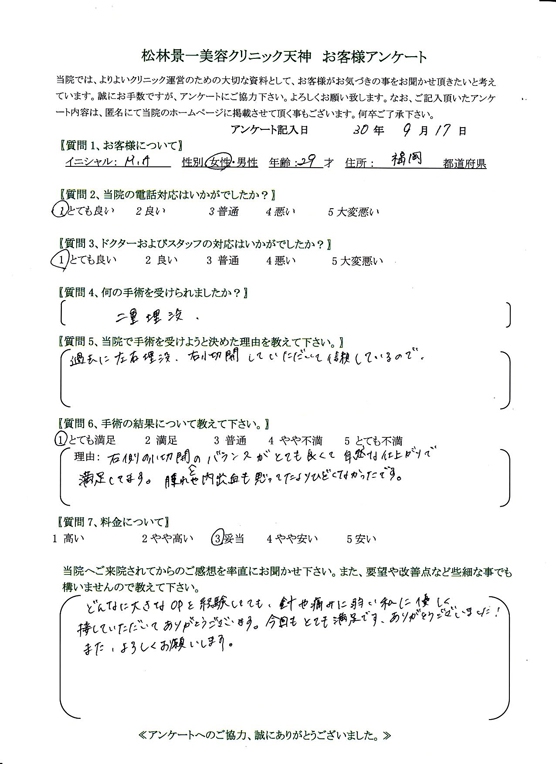 松林景一美容クリニック天神 お客様アンケート
当院では、よりよいクリニック運営のための大切な資料として、お客様がお気づきの事をお聞かせ頂きたいと考え
ています。誠にお手数ですが、アンケートにご協力下さい。よろしくお願い致します。なお、ご記入頂いたアンケ
ート内容は、匿名にて当院のホームページに掲載させて頂く事もございます。何卒ご了承下さい。
アンケート記入日 30 年 9 月 17 日
〖質問1、お客様について〗
イニシャル：M.A 性別 女性・男性 年齢：29 才 住所： 福岡 都道府県
〖質問2、当院の電話対応はいかがでしたか？〗
1とても良い 2良い 3普通 4悪い 5大変悪い
〖質問3、ドクターおよびスタッフの対応はいかがでしたか？〗
1とても良い 2 良い 3 普通 4悪い 5大変悪い
〖質問4、何の手術を受けられましたか？〗
二重埋没.
〖質問5、当院で手術を受けようと決めた理由を教えて下さい。〗
過去に左右埋没、右小切開していただいて信頼しているので。
〖質問6、手術の結果について教えて下さい。〗
1とても満足 2 満足 3 普通 4 やや不満 5 とても不満
理由：右側の小切開のバランスがとても良くて自然な仕上がりで
満足してます。腫れや内出血も思ってたよりひどくなかったです。
〖質問7、料金について〗
1 高い 2やや高い 3妥当 4やや安い 5安い
当院へご来院されてからのご感想を率直にお聞かせ下さい。また、要望や改善点など些細な事でも
構いませんので教えて下さい。
どんなに大きなOPを経験してても、針や痛みに弱い私に優しく
接していただいてありがとうございます。今回もとても満足です、ありがとうございました！
また、よろしくお願いします。
≪アンケートへのご協力、誠にありがとうございました。≫